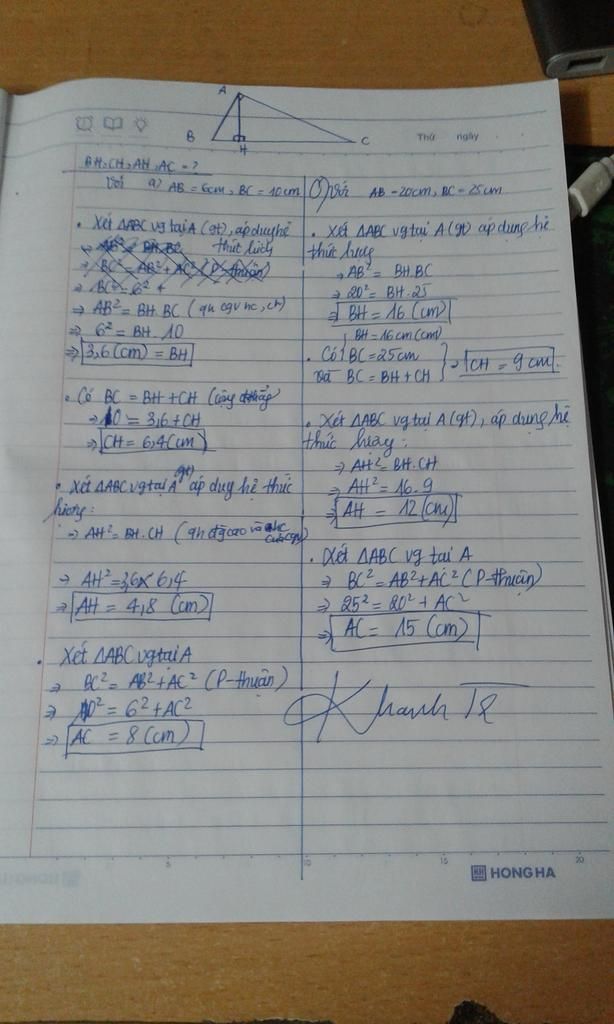 A
B
H
C
Thứ ngày
BH, CH, AH, AC = ?
Với a) AB = 6cm, BC = 10cm
• Xét ΔABC vg tại A (gt), áp dụng hệ
thức lượng
⇒ AB² = BH.BC
⇒ BC² = AB² + AC² (P-thuận)
⇒ BC² = 6² +
⇒ AB² = BH.BC (qh cgv hc, ch)
⇒ 6² = BH.10
⇒ 3,6 (cm) = BH
• Có BC = BH + CH
⇒ 10 = 3,6 + CH
⇒ CH = 6,4 (cm)
• Xét ΔABC vg tại A (gt) áp dụng hệ thức
lượng:
⇒ AH² = BH.CH (qh đg cao và hc
⇒ AH² = 3,6 × 6,4
⇒ AH = 4,8 (cm)
• Xét ΔABC vg tại A
⇒ BC² = AB² + AC² (P-thuận)
⇒ 10² = 6² + AC²
⇒ AC = 8 (cm)
Với AB = 20cm, BC = 25cm
• Xét ΔABC vg tại A (gt) áp dụng hệ
thức lượng
⇒ AB² = BH.BC
⇒ 20² = BH.25
⇒ BH = 16 (cm)
BH = 16cm (cm)
• Có BC = 25cm
và BC = BH + CH
⇒ CH = 9 cm
• Xét ΔABC vg tại A (gt), áp dụng hệ
thức lượng:
⇒ AH² = BH.CH
⇒ AH² = 16.9
⇒ AH = 12 (cm)
• Xét ΔABC vg tại A
⇒ BC² = AB² + AC² (P-thuận)
⇒ 25² = 20² + AC²
⇒ AC = 15 (cm)
Khanh
5 10 15 20
HONG HA